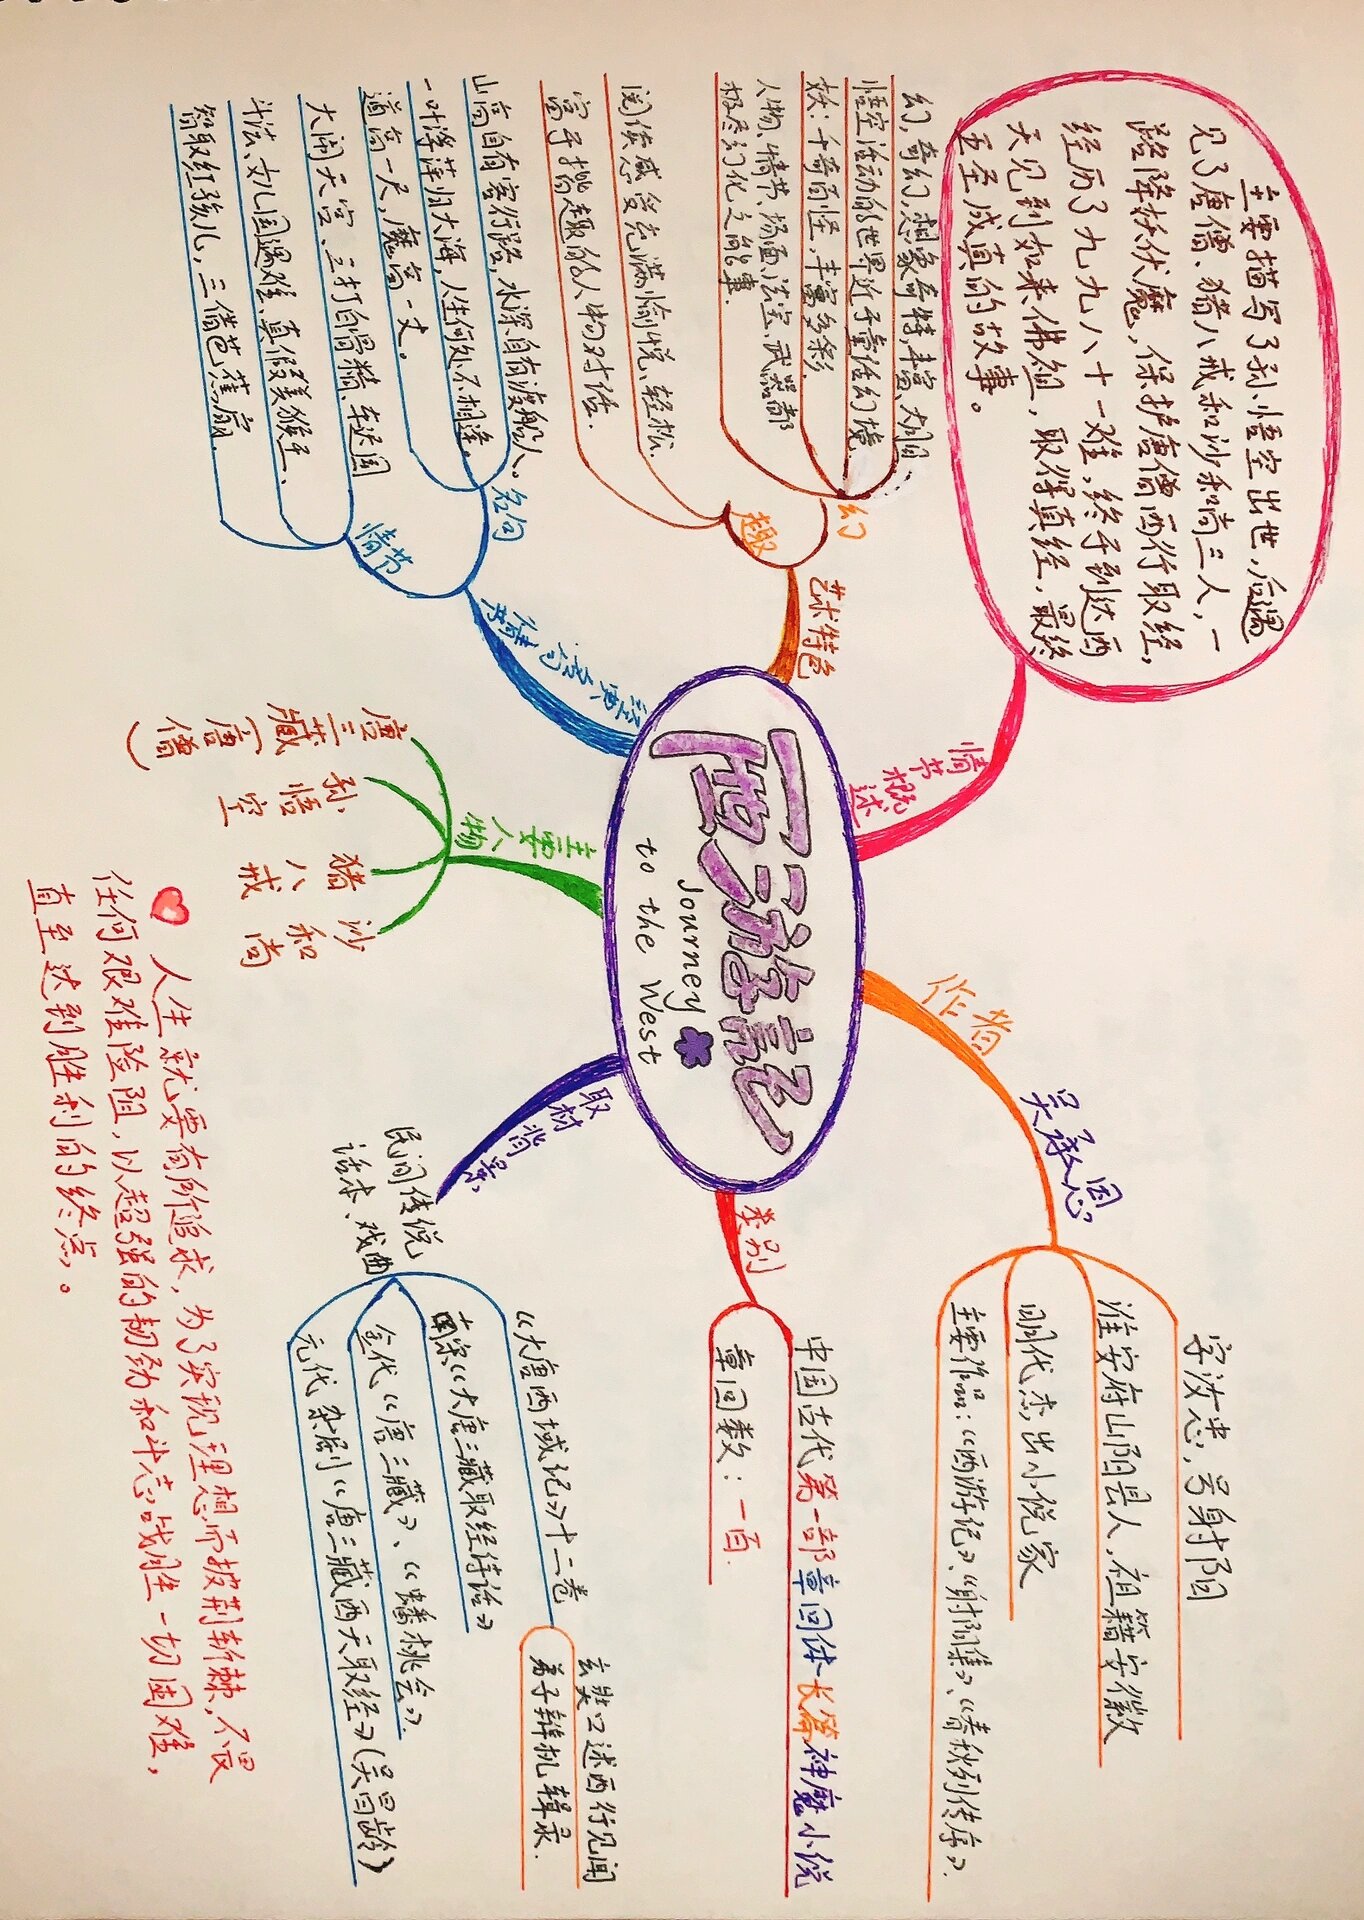 西游記
Journey
to the West
情节概述
主要描写了孙悟空出世，后遇
见了唐僧、猪八戒和沙和尚三人，一
路降妖伏魔，保护唐僧西行取经，
经历了九九八十一难，终于到达西
天见到如来佛祖，取得真经，最终
五圣成真的故事。
艺术特色
幻
幻，奇幻，想象奇特，丰富、大胆
悟空活动的世界近于童话幻境.
妖：千奇百怪，丰富多彩.
人物、情节、场面、法宝、武器都
极尽幻化之能事.
趣
阅读感受充满愉悦、轻松.
富于揶趣的人物对话.
名句
山高自有客行路，水深自有渡船人。
一叶浮萍归大海，人生何处不相逢。
道高一尺，魔高一丈。
情节
大闹天宫、三打白骨精、车迟国
斗法、女儿国遇难、真假美猴王、
智取红孩儿，三借芭蕉扇
主要人物
唐三藏（唐僧）
孙悟空
猪八戒
沙和尚
作者
吴承恩
字汝忠，号射阳
淮安府山阳县人，祖籍安徽
明代杰出小说家
主要作品：《西游记》、《射阳集》、《春秋列传序》.
类别
中国古代第一部章回体长篇神魔小说
章回数：一百.
取材背景
民间传说
话本、戏曲
《大唐西域记》十二卷
玄奘口述西行见闻
弟子辩机辑录.
南宋《大唐三藏取经诗话》
金代《唐三藏》、《蟠桃会》.
元代杂剧《唐三藏西天取经》（吴昌龄）
人生就要有所追求，为了实现理想而披荆斩棘，不畏
任何艰难险阻，以超强的韧劲和斗志战胜一切困难，
直至达到胜利的终点。